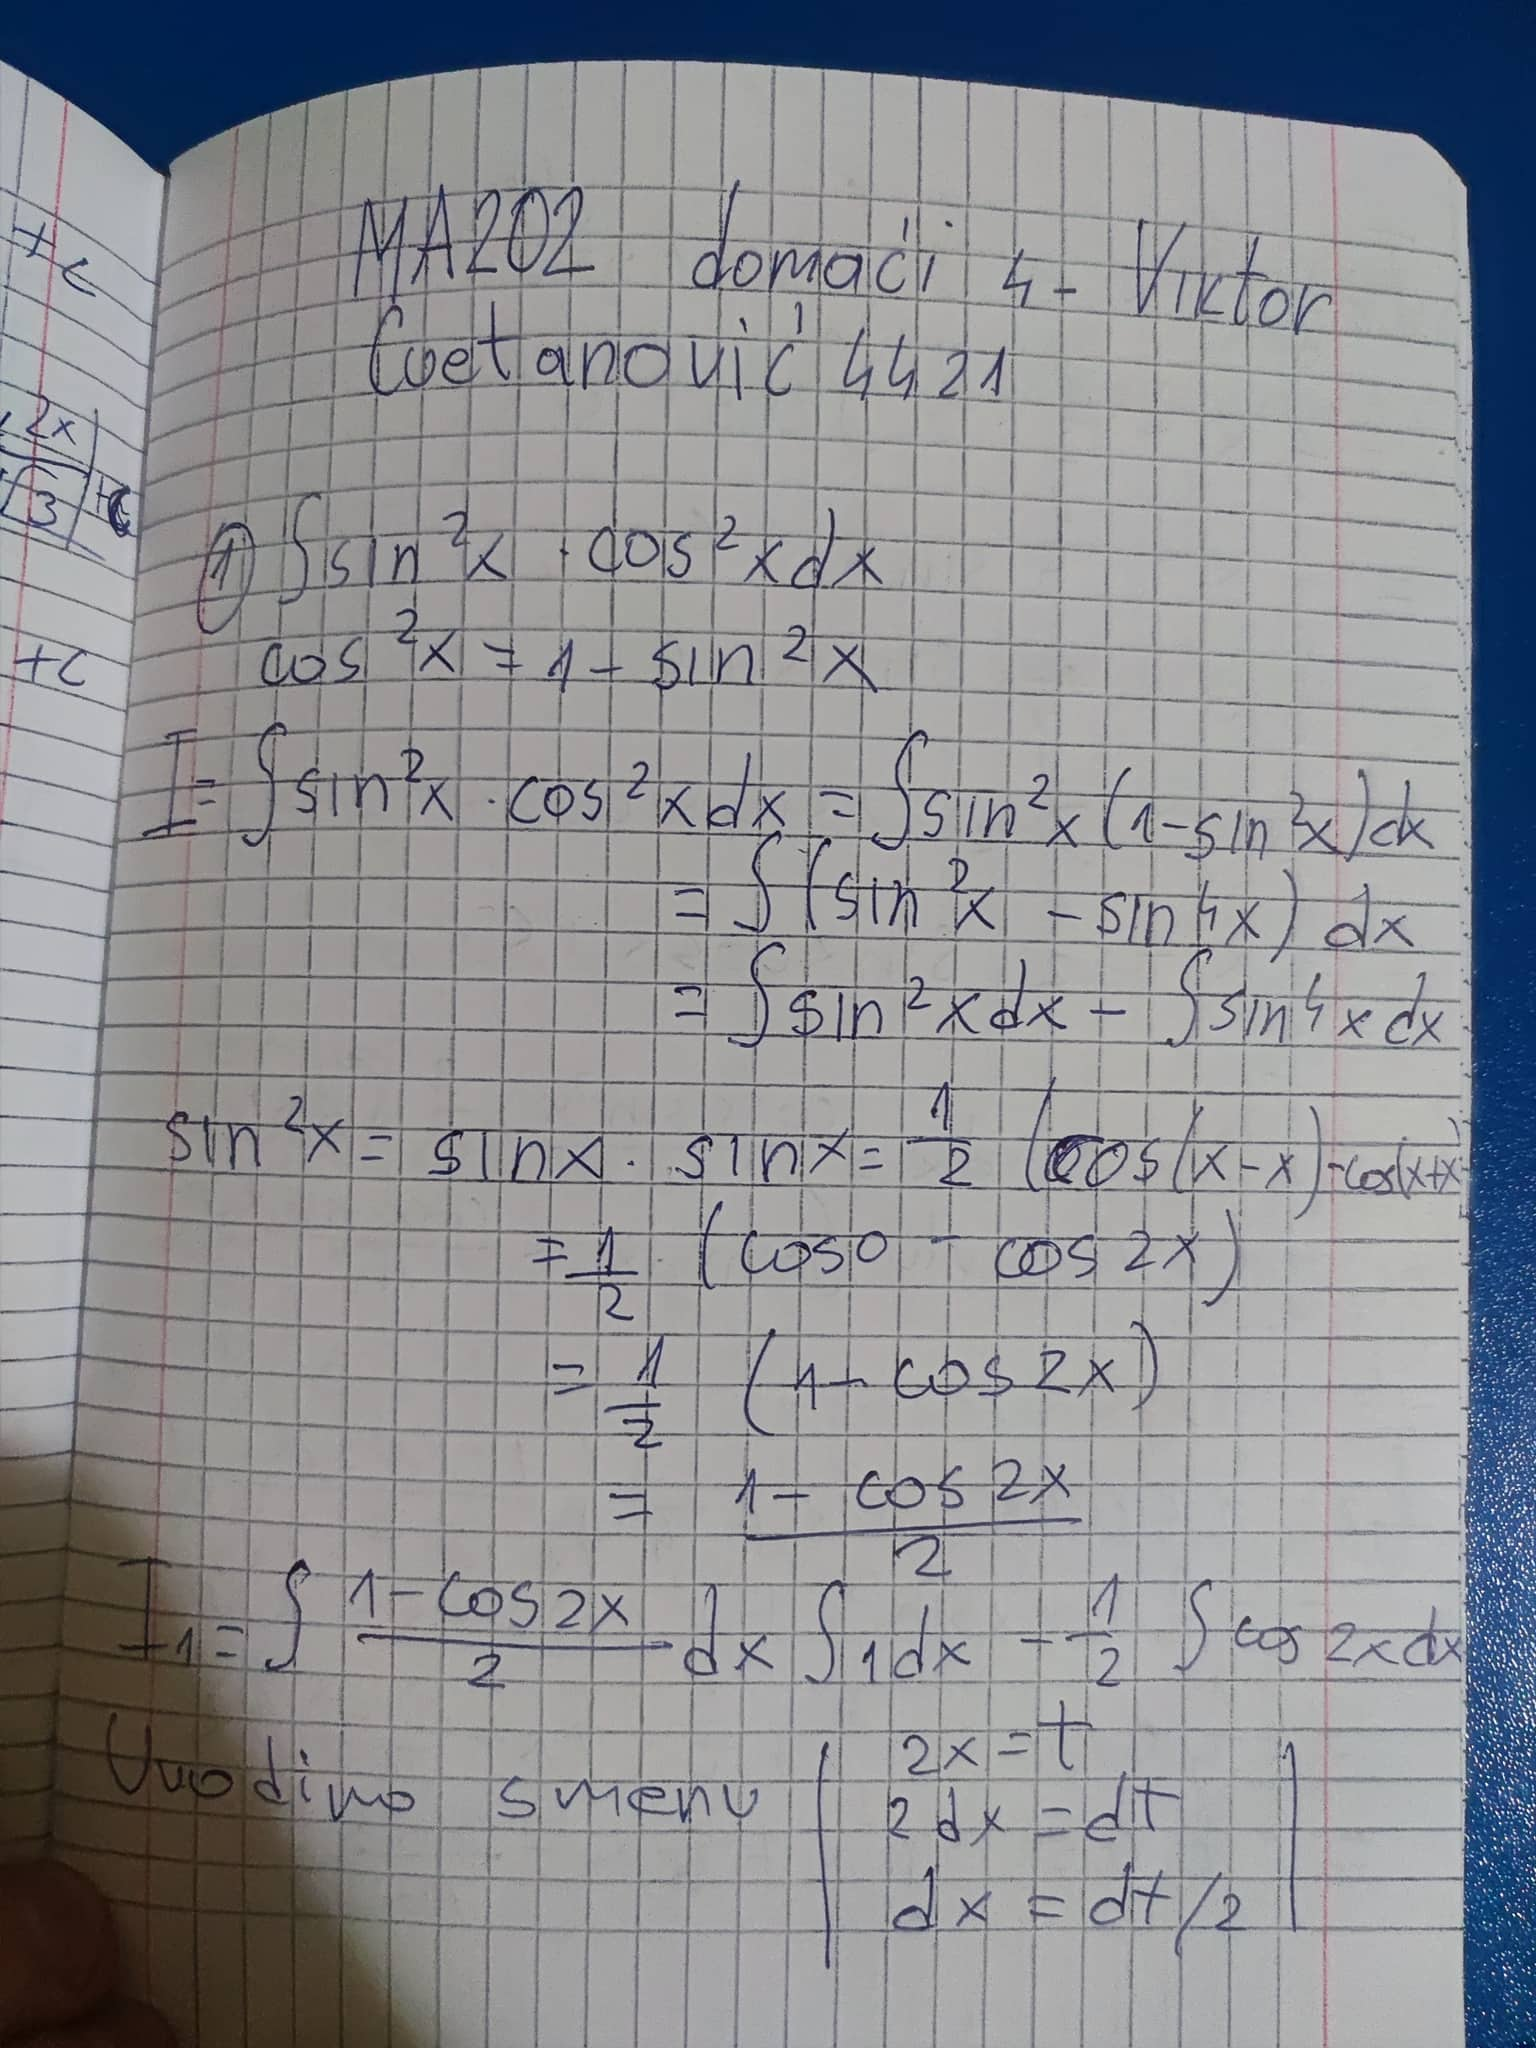 MA202 domaći 4 - Viktor
Cvetanović 4421
+c
2x
√3 +c
+c
1) ∫sin²x · cos²xdx
cos²x = 1 - sin²x
I = ∫sin²x · cos²xdx = ∫sin²x (1-sin²x)dx
= ∫(sin²x - sin⁴x) dx
= ∫sin²xdx - ∫sin⁴xdx
sin²x = sinx · sinx = 1/2 (cos(x-x) - cos(x+x)
= 1/2 · (cos0 - cos2x)
= 1/2 (1 - cos2x)
= (1 - cos2x)/2
I₁ = ∫ (1-cos2x)/2 dx ∫1dx - 1/2 ∫cos2xdx
Uvodimo smenu | 2x = t
2dx = dt
dx = dt/2 |